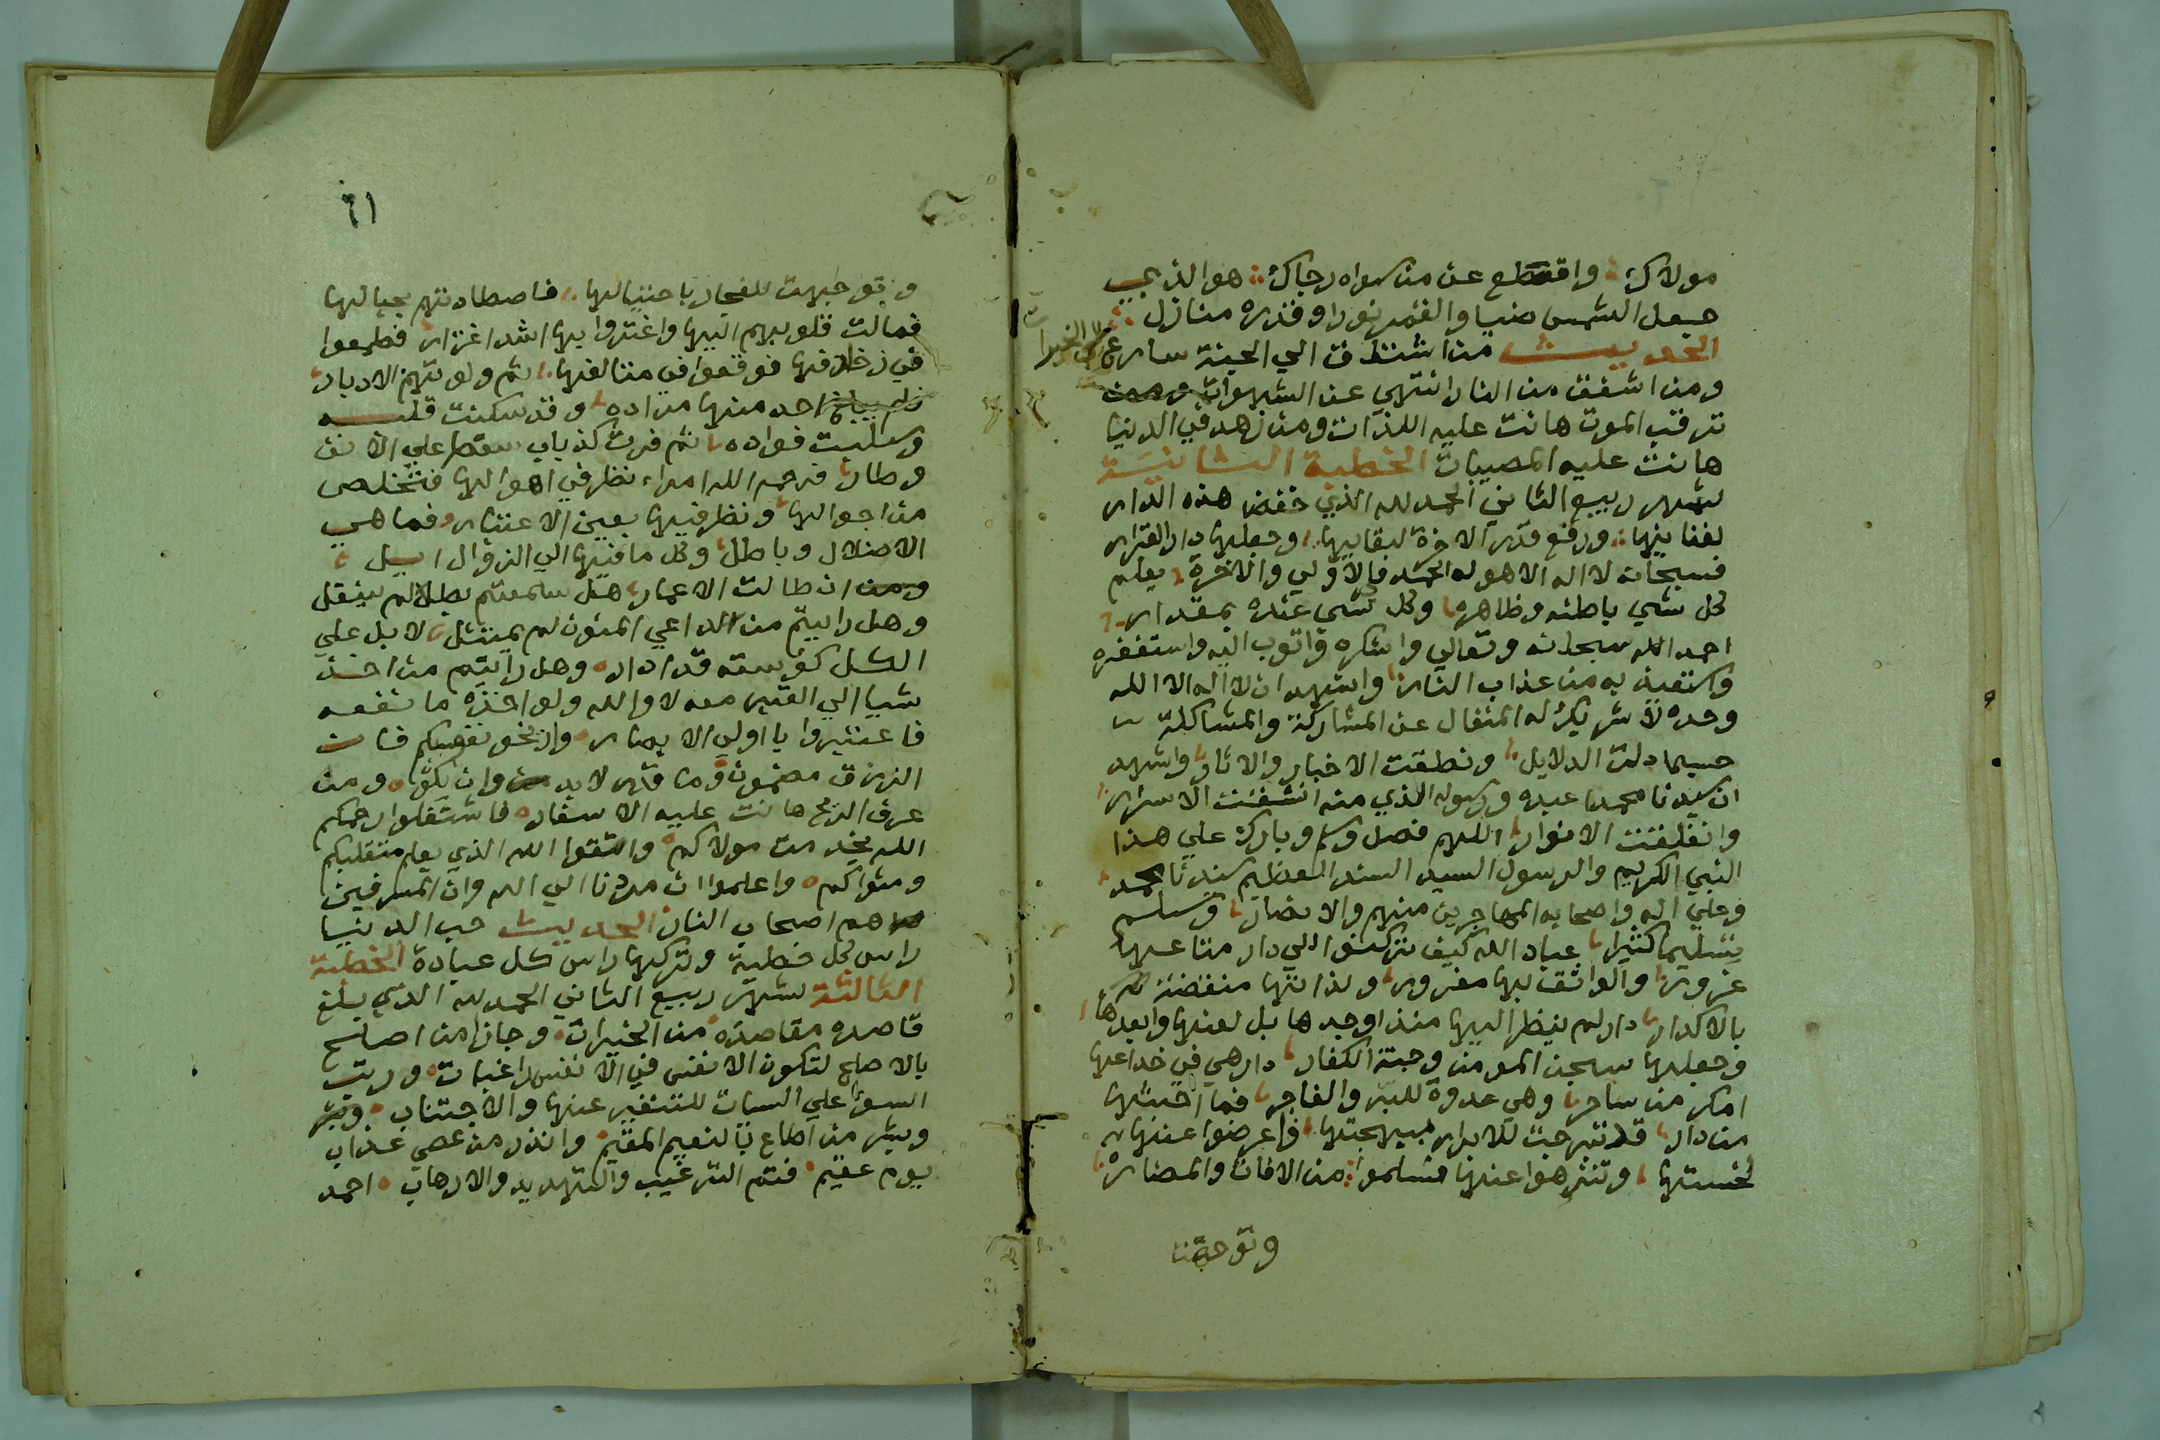 مولاك واقطع عن من سواه رجاك هو الذي
جعل الشمس ضيا والقمر نورا وقدره منازل
الحديث من اشتاق الي الجنة سارع الي الخيرات
ومن اشفق من النار انتهي عن الشهوات ومن
ترقب الموت هانت عليه اللذات ومن زهد في الدنيا
هانت عليه المصيبات الخطبة الثانية
لشهر ربيع الثاني الحمد لله الذي خفض هذه الدار
لفنايها ورفع قدر الاخرة لبقايها وجعلها دار القرار
فسبحانه لا اله الا هو له الحمد في الاولي والاخرة يعلم
كل شي باطنه وظاهره وكل شي عنده بمقدار
احمد الله سبحانه وتعالي واشكره واتوب اليه واستغفره
واستعيذ به من عذاب النار واشهد ان لا اله الا الله
وحده لا شريك له المتعال عن المشاركة والمشاكلة
حسبما دلت الدلايل ونطقت الاخبار والاثار واشهد
ان سيدنا محمدا عبده ورسوله الذي منه انشقت الاسرار
وانفلقت الانوار اللهم فصل وسلم وبارك علي هذا
النبي الكريم والرسول السيد السند العظيم سيدنا محمد
وعلي اله واصحابه المهاجرين منهم والانصار وسلم
تسليما كثيرا عباد الله كيف تركنوا الي دار متاعها
غرور والواثق بها مغرور ولذاتها منغصة
بالاكدار دار لم ينظر اليها منذ اوجدها بل لعنها وابعدها
وجعلها سجن المومن وجنة الكفار دار هي في خداعها
امكر من ساحر وهي عدوة للبر والفاجر فما اخبثها
من دار قد تبرجت للابرار ببهجتها فاعرضوا عنها
لخستها وتنزهوا عنها فسلموا من الافات والمضار
وتوجهت
٦١
وتوجهت للفجار باحتيالها فاصطادتهم بحبالها
فمالت قلوبهم اليها واغتروا بها اشد اغترار فطمعوا
في زخارفها فوقعوا في متالفها ثم ولوتهم الادبار
فلم يبلغ احد منها مراده وقد سكنت قلبه
وسلبت فواده ثم فرت كذباب سقط علي الانف
وطار فرحم الله امراء نظر في اهوالها فتخلص
من احوالها ونظر فيها بعين الاعتبار فما هي
الا ضلال وباطل وكل ما فيها الي الزوال ايل
ومن ان طالت الاعمار هل سمعتم بطلا لم ينقل
وهل رايتم من الداعي المنون لم يمتثل لا بل علي
الكل كؤسه قد ادار وهل رايتم من اخذ
شيا الي القبر معه لا والله ولو اخذه ما نفعه
فاعتبروا يا اولي الابصار وازيحو نفوسكم فان
الرزق مضمون وما قدر لابد وان يكون ومن
عرف الربح هانت عليه الاسفار فاشتغلوا رحمكم
الله بخدمت مولاكم واتقوا الله الذي يعلم متقلبكم
ومثواكم واعلموا ان مردنا الي الله وان المسرفين
هم اصحاب النار الحديث حب الدنيا
راس كل خطية وتركها راس كل عبادة الخطبة
الثالثة لشهر ربيع الثاني الحمد لله الذي بلغ
قاصده مقاصده من الخيرات وجازا من اصلح
بالاصلح لتكون الانفس في الانفس راغبات ورتب
السوء علي السيات للتنفير عنها والاجتناب
وبشر من اطاع بالنعيم المقيم وانذر من عصي عذاب
يوم عقيم فتم الترغيب والتهديد والارهاب احمد